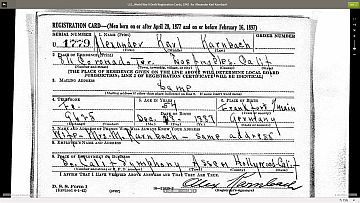 U.S., World War II Draft Registration Cards, 1942 for Alexander Karl Karnbach
REGISTRATION CARD—(Men born on or after April 28, 1877 and on or before February 16, 1897)
SERIAL NUMBER 1. NAME (Print) ORDER NUMBER
U 1779 Alexander Karl Karnbach
2. PLACE OF RESIDENCE (Print)
Coronado Ter. Los Angeles, Calif
(Number and street) (Town, township, village, or city) (County) (State)
[THE PLACE OF RESIDENCE GIVEN ON THE LINE ABOVE WILL DETERMINE LOCAL BOARD
JURISDICTION; LINE 2 OF REGISTRATION CERTIFICATE WILL BE IDENTICAL]
3. MAILING ADDRESS
Same
[Mailing address if other than place indicated on line 2. If same insert word same]
4. TELEPHONE 5. AGE IN YEARS 6. PLACE OF BIRTH
Main
DATE OF BIRTH
Dec. 1887 Germany
7. NAME AND ADDRESS OF PERSON WHO WILL ALWAYS KNOW YOUR ADDRESS
Wife - Mrs. M. Karnbach - same address
8. EMPLOYER'S NAME AND ADDRESS
9. PLACE OF EMPLOYMENT OR BUSINESS
So. Calif Symphony Assn Hollywood Calif
I AFFIRM THAT I HAVE VERIFIED ABOVE ANSWERS AND THAT THEY ARE TRUE.
D. S. S. Form 1
Alex Karnbach